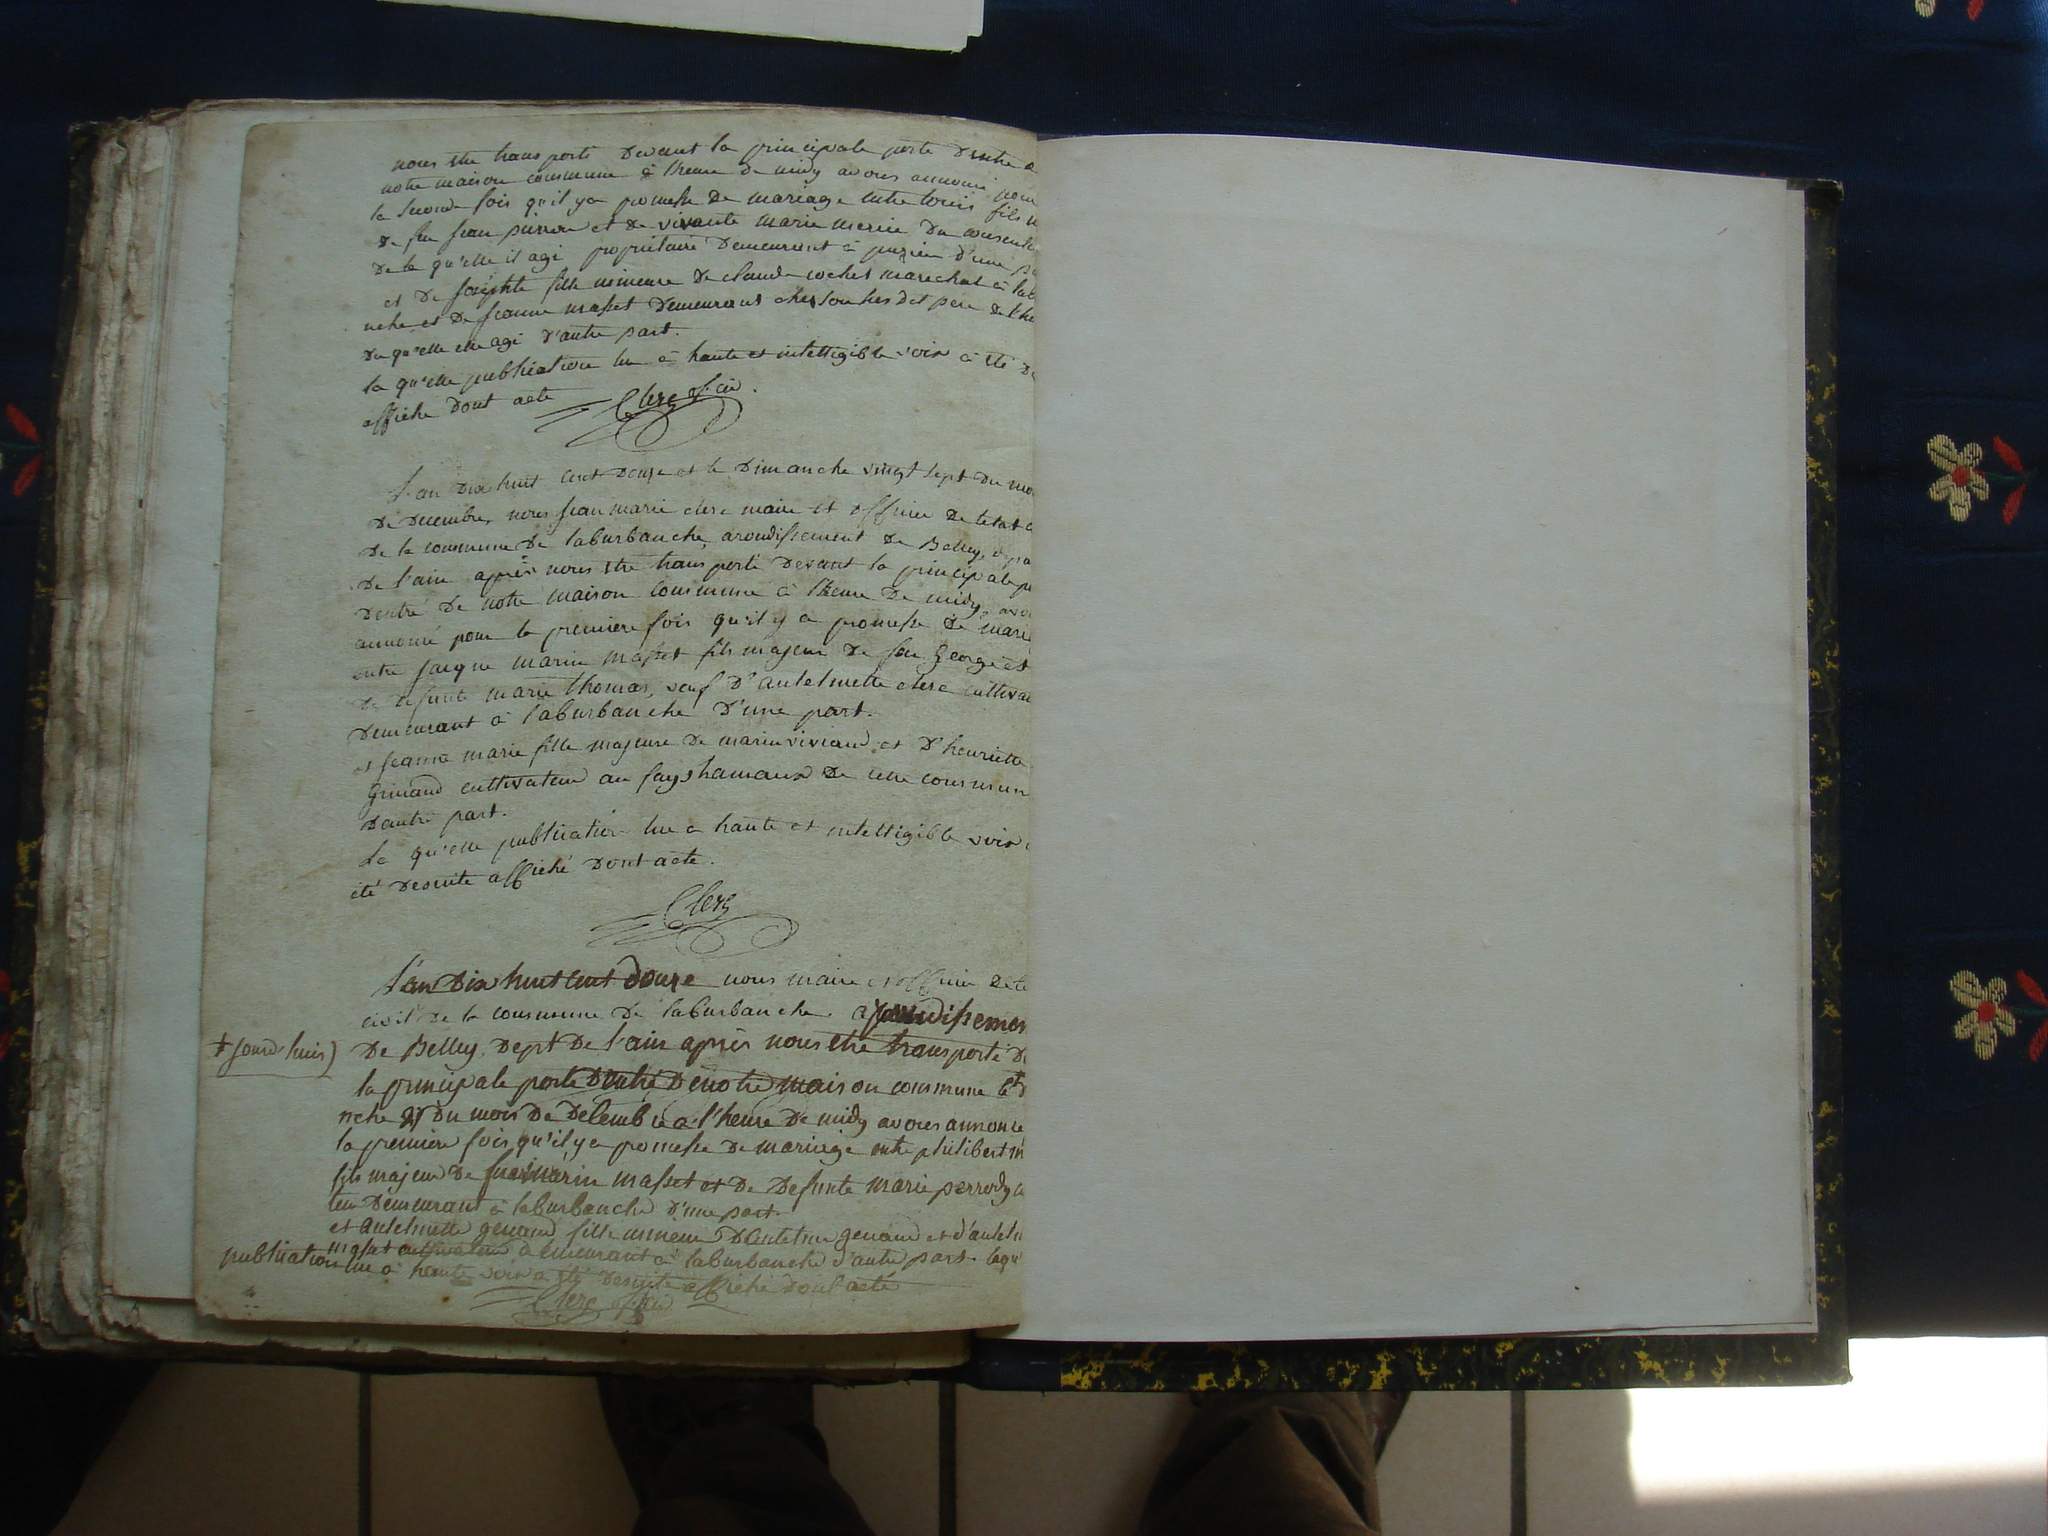 nous etre transporté devant la principale porte dentre
notre maison commune a lheure de midy avons annoncé pour
la seconde fois qu'il ya promesse de mariage entre fils
de feu jean et de vivante marie du
de la qu'elle il agi propriétaire demeurant a d'une
et de fille mineure de claude cochet marechal a lab
nche et de jeanne masset demeurant ches son susdit pere de
du qu'elle elle agi d'autre part.
la qu'elle publication lue a haute et intelligible voix a été de
affiche dont acte Clerc of. civ.
L'an dix huit cent douze et le dimanche vingt sept du moi
de decembre, nous jean marie clerc maire et officier de letat c
de la commune de laburbanche, arondissement de Belley, depa
de l'ain après nous etre transporté devant la principale po
dentré de notre maison commune à lheure de midy, avo
annoncé pour la premiere fois qu'il y a promesse de mari
entre jacque marin masset fils majeur de feu George et
de defunte marie thomas, veuf d'antelmette clerc cultivat
demeurant à laburbanche d'une part.
et jeanne marie fille majeure de marin viviand et d'henriette
Grinand cultivateur au fays hamaux de cette commun
dautre part.
La qu'elle publication lue a haute et intelligible voix a
été desuite affiché dont acte.
Clerc
L'an dix huit cent douze nous maire et officier de le
civil de la commune de laburbanche arondissemen
+ jourd'huis) de Belley, dept de l'ain après nous etre transporté d
la principale porte dentré de notre maison commune le d
nche 27 du mois de decembre a l'heure de midy avons annoncé
la premiere fois qu'il y a promesse de mariage entre philibert m
fils majeur de feu marin masset et de defunte marie perrody c
teur demeurant a laburbanche d'une part.
et antelmette genand fille mineure d'antelme genand et d'antelm
masset cultivateur demeurant à laburbanche d'autre part. laqu'
publication lue a haute voix a été desuite affiché dont acte
Clerc of. civ